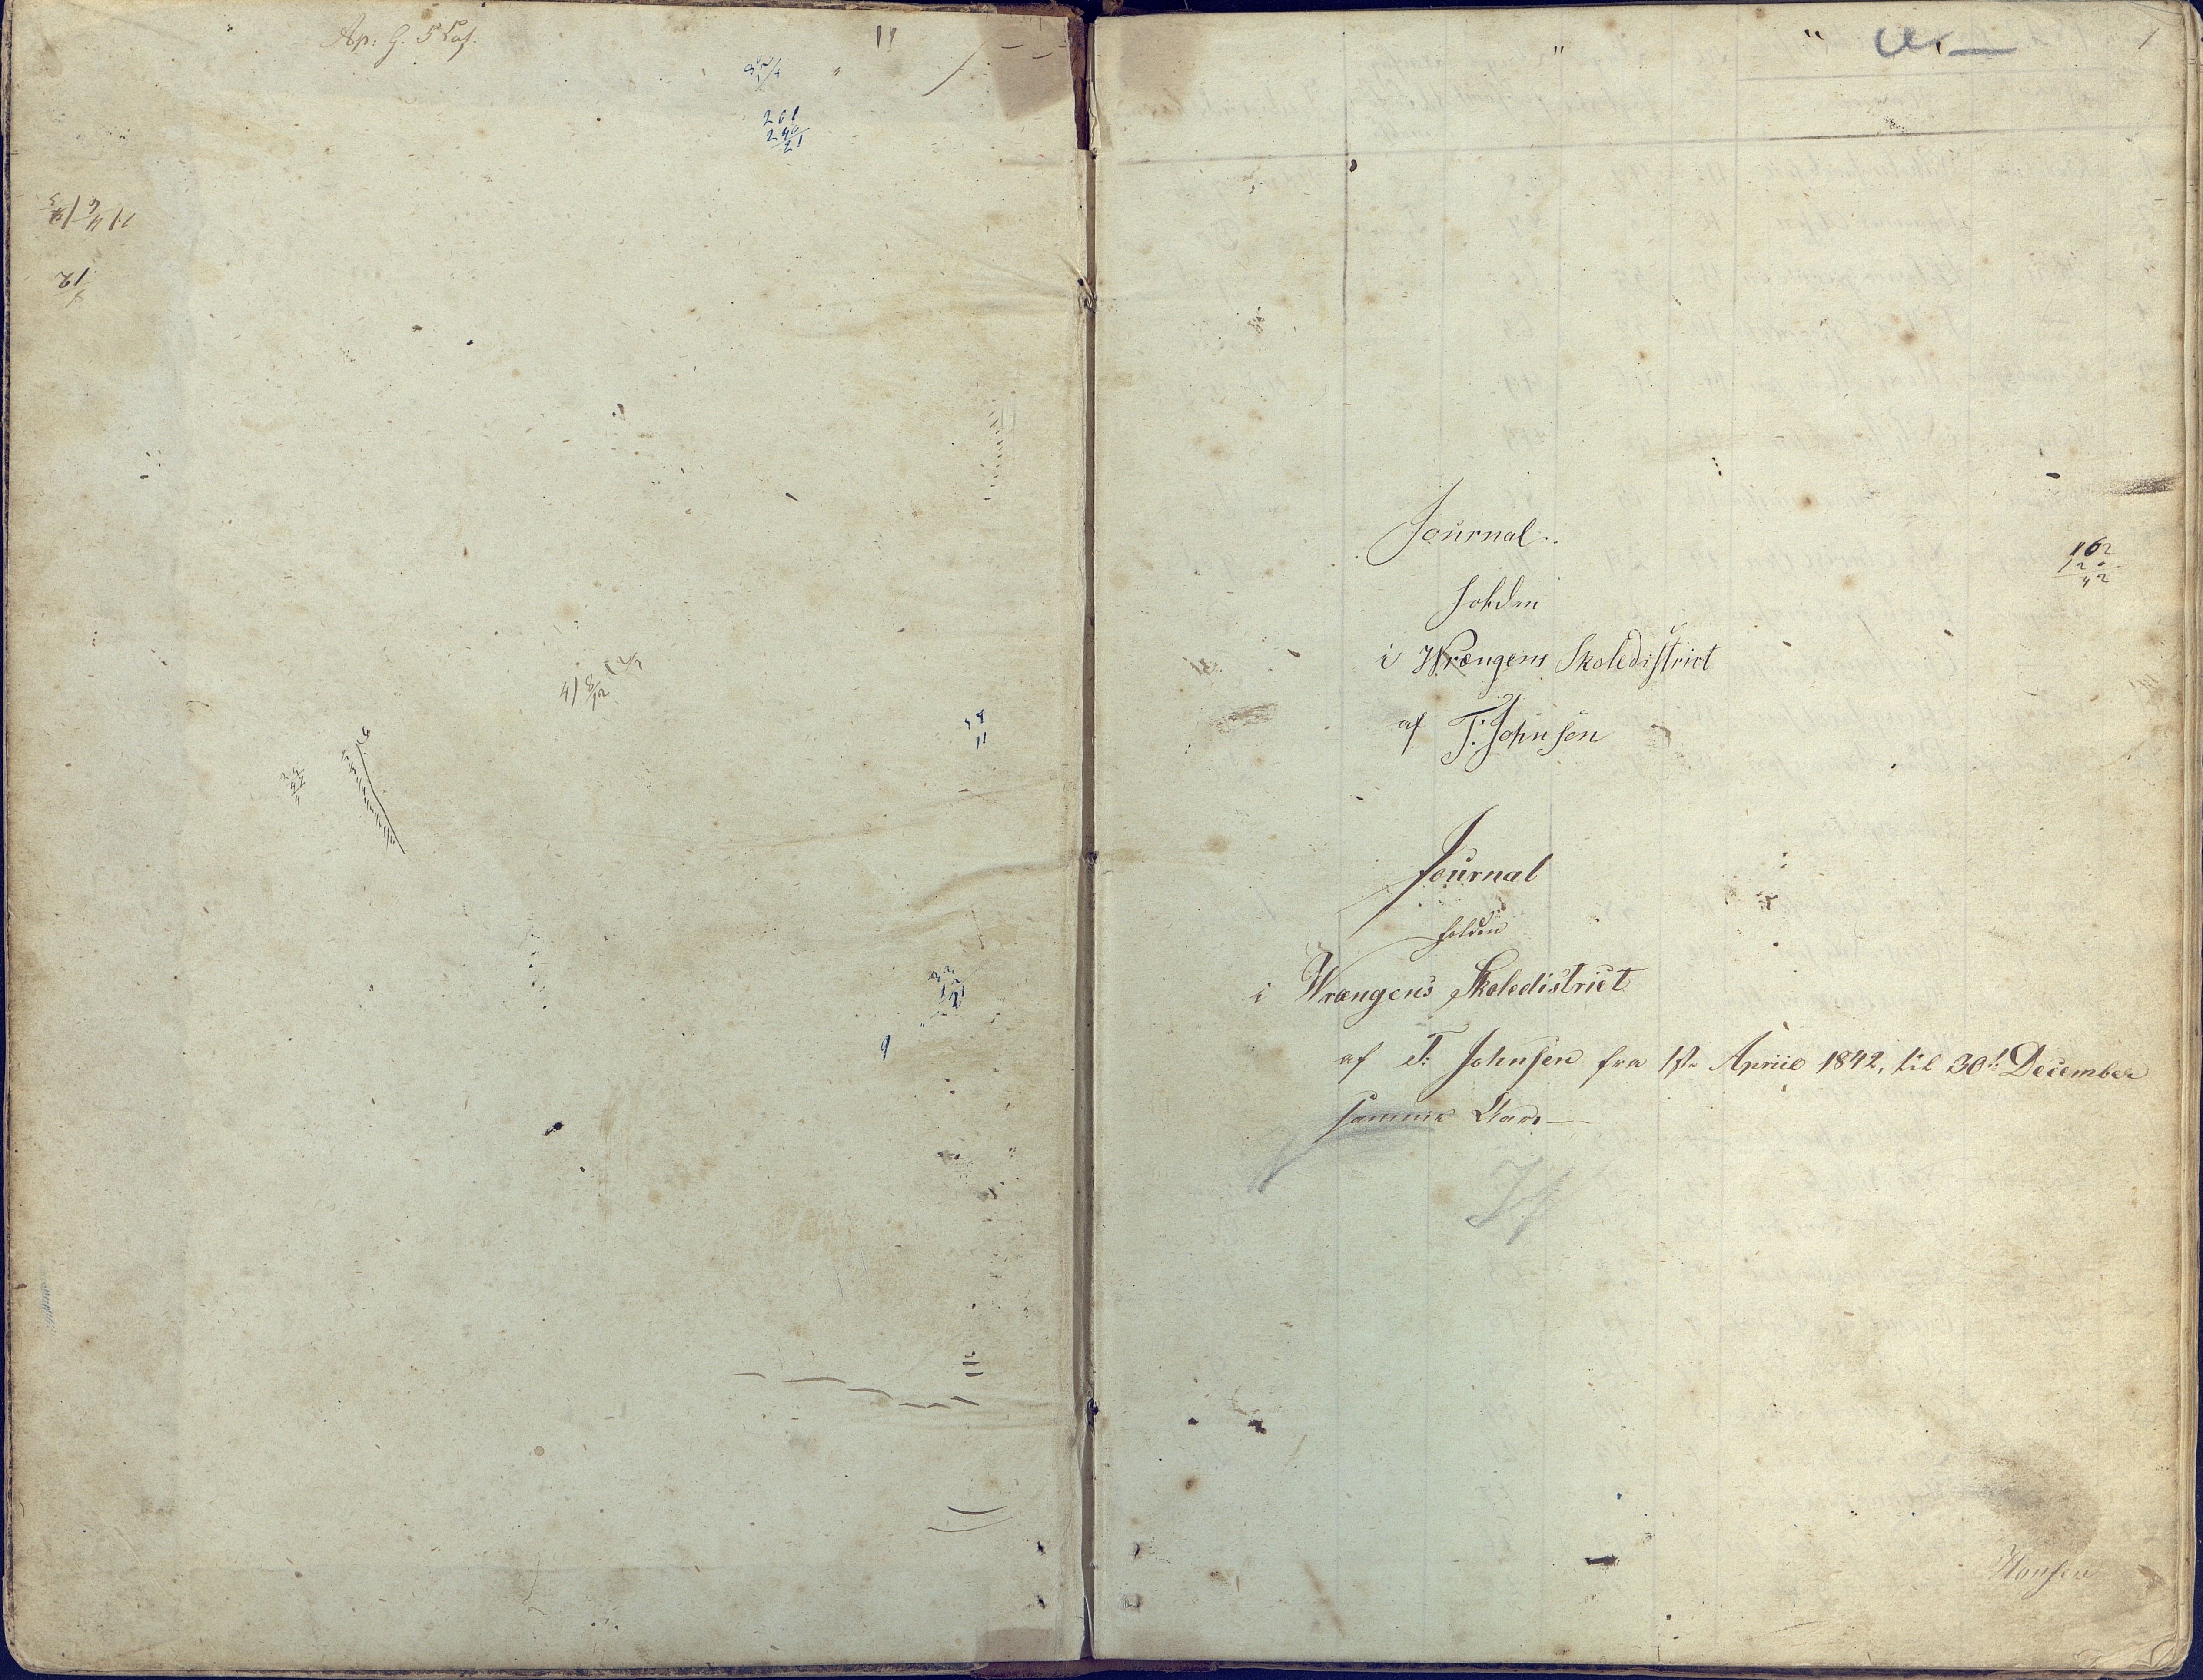 Ap: G. 5 Cap.
261
240
21
12
11
9
1
162
120
42
Journal
holden
i Wrængens Skoledistrict
af T. Johnsen
Journal
holden
i Wrængens Skoledistrict
af T: Johnsen fra 1ste April 1842, til 30te December
samme Aar
Hansen